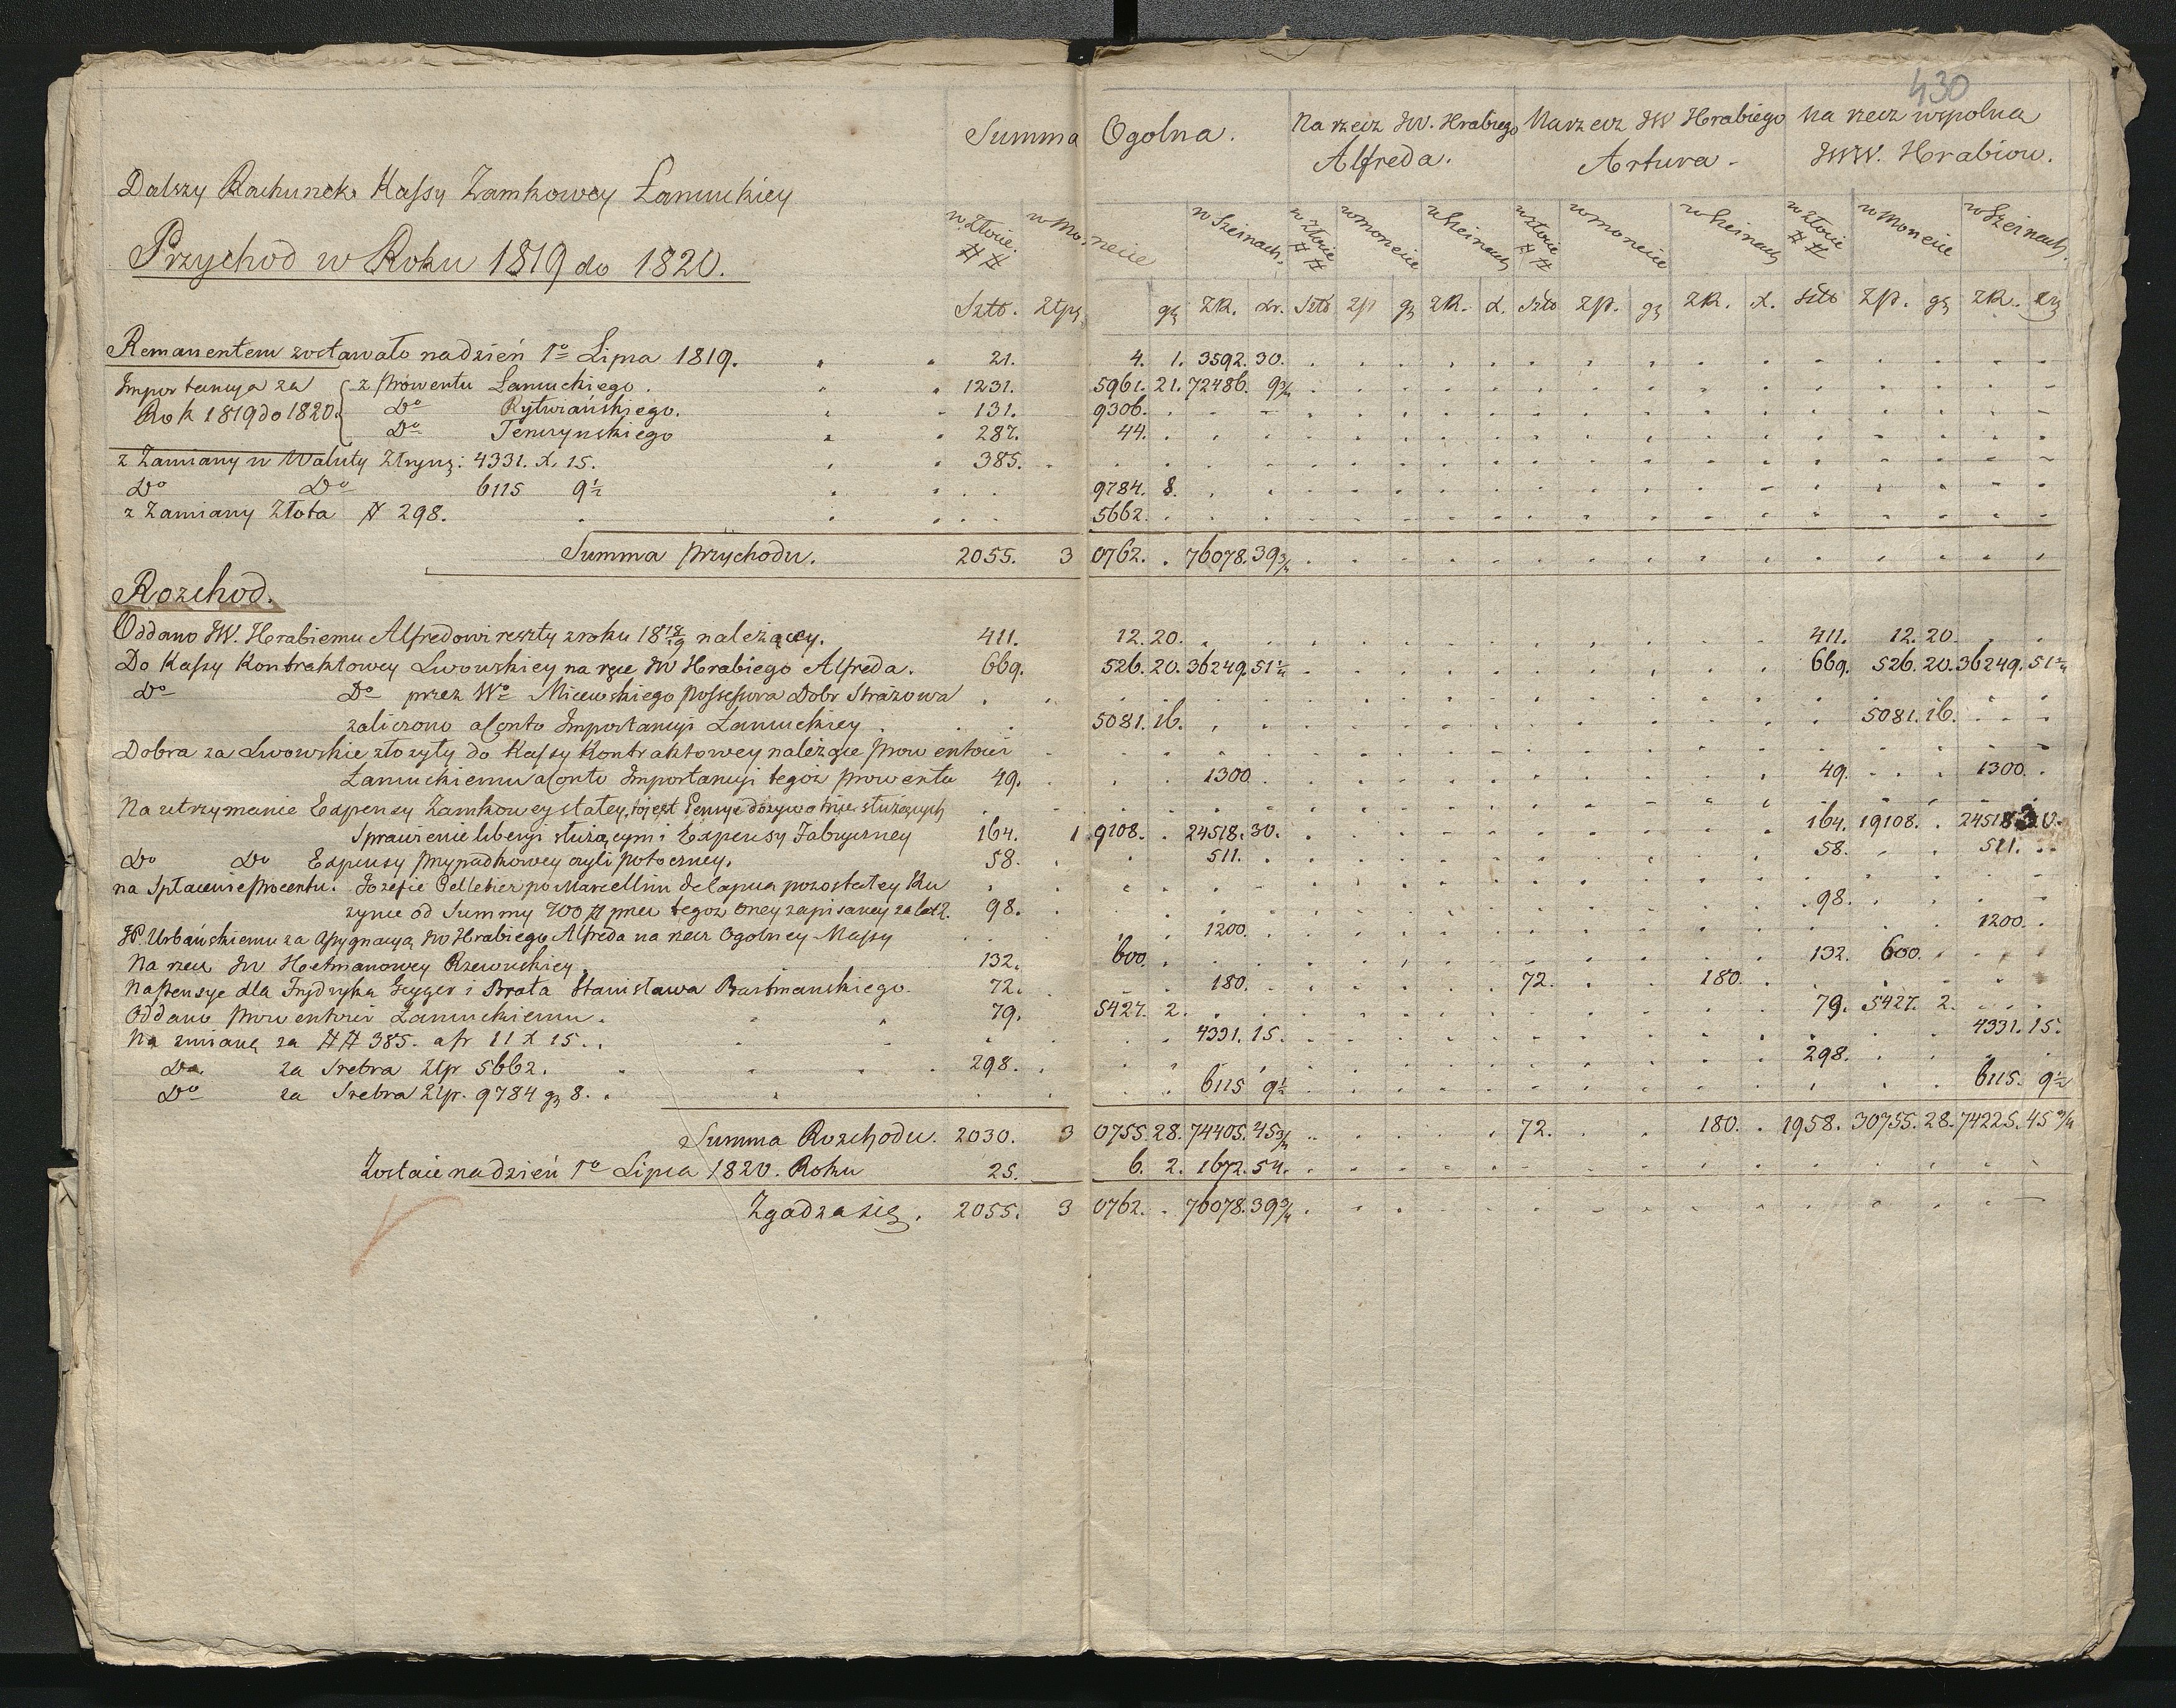 430
Summa Ogolna. Na rzecz JW. Hrabiego Alfreda. Na rzecz JW Hrabiego Artura - Na rzecz wspolna JWW. Hrabiow.
Dalszy Rachunek Kassy Zamkowey Łancuckiey
Przychod w Roku 1819 do 1820.
w Złocie. ## w Monecie w Szeinach. w Złocie ## w monecie w Szeinach w złocie ## w monecie w Szeinach w Złocie ## w Monecie w Szeinach.
Szto. Ztps. gg ZR. xr. Szto Zp gg ZR. x. Szto Zp. gg ZR. x. Szto Zp. gg ZR. xr
Remanentem zostawało na dzień 1o Lipca 1819. 21. 4. 1. 3592. 30.
Importancya za Rok 1819 do 1820. { z prowentu Łancuckiego. 1231. 5961. 21. 72486. 9¾
Do Rytwiańskiego. 131. 9306.
Do Tenczynskiego 287. 44.
z Zamiany w Waluty Złryng: 4331. x. 15. 385.
Do Do 6115 9½ 9784. 8.
z Zamiany Złota # 298. 5662.
Summa przychodu. 2055. 30762. . 76078. 39¾
Rozchod.
Oddano JW. Hrabiemu Alfredowi reszty z roku 18 18/19 należącey. 411. 12. 20. 411. 12. 20.
Do Kassy Kontraktowey Lwowskiey na ręce JW Hrabiego Alfreda. 669. 526. 20. 36249. 51¼ 669. 526. 20. 36249. 51¼
Do Do przez Wo Micewskiego possessora Dobr Strażowa
zaliczono a Conto Importancyi Łancuckiey 5081. 16. 5081. 16.
Dobra za Lwowskie złożyły do Kassy Kontraktowey należące prowentowi
Łancuckiemu a Conto Importancyi tegoż prowentu 49. 1300. 49. 1300.
Na utrzymanie Expensy Zamkowey stałey, to jest Pensye dożywotnie służących
Sprawienie liberyi służącym i Expensy Fabryczney 164. 19108. . 24518. 30. 164. 19108. . 24518 30.
Do Do Expensy przypadkowey czyli potoczney. 58. 511. 58. 511.
na Spłacenie procentu. Jozefie Pelletier po Marcellim delapua pozostałey Ku
zynce od Summy 700 # przez tegoż oney zapisaney za lat 2. 98. 98.
JP. Urbańskiemu za Assygnacyą JW Hrabiego Alfreda na rzecz Ogolney Massy 1200. 1200.
Na rzecz JW Hetmanowey Rzewuskiey. 132. 600. 132. 600.
Na pensye dla Frydryka Geyger i Brata Stanisława Bartmanskiego. 72. 180. 72. 180.
Oddano prowentowi Łancuckiemu. 79. 5427. 2. 79. 5427. 2.
Na zmianę za ## 385. a fr 11 x 15. 4331. 15. 4331. 15.
Do. za Srebra Ztp 5662. 298. 298.
Do za Srebra Ztp. 9784 gg 8. 6115 9½ 6115. 9½
Summa Rozchodu. 2030. 30755. 28. 74405. 45¾ 72. 180. 1958. 30755. 28. 74225. 45¾
Zostaie na dzień 1o Lipca 1820. Roku 25. 6. 2. 1672. 54.
Zgadza się. 2055. 30762. . 76078. 39¾